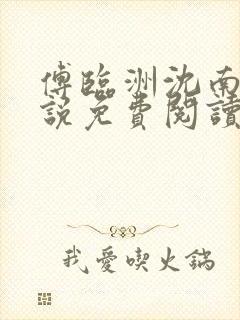 傅臨洲沈南
說免費閱讀
我愛喫火鍋